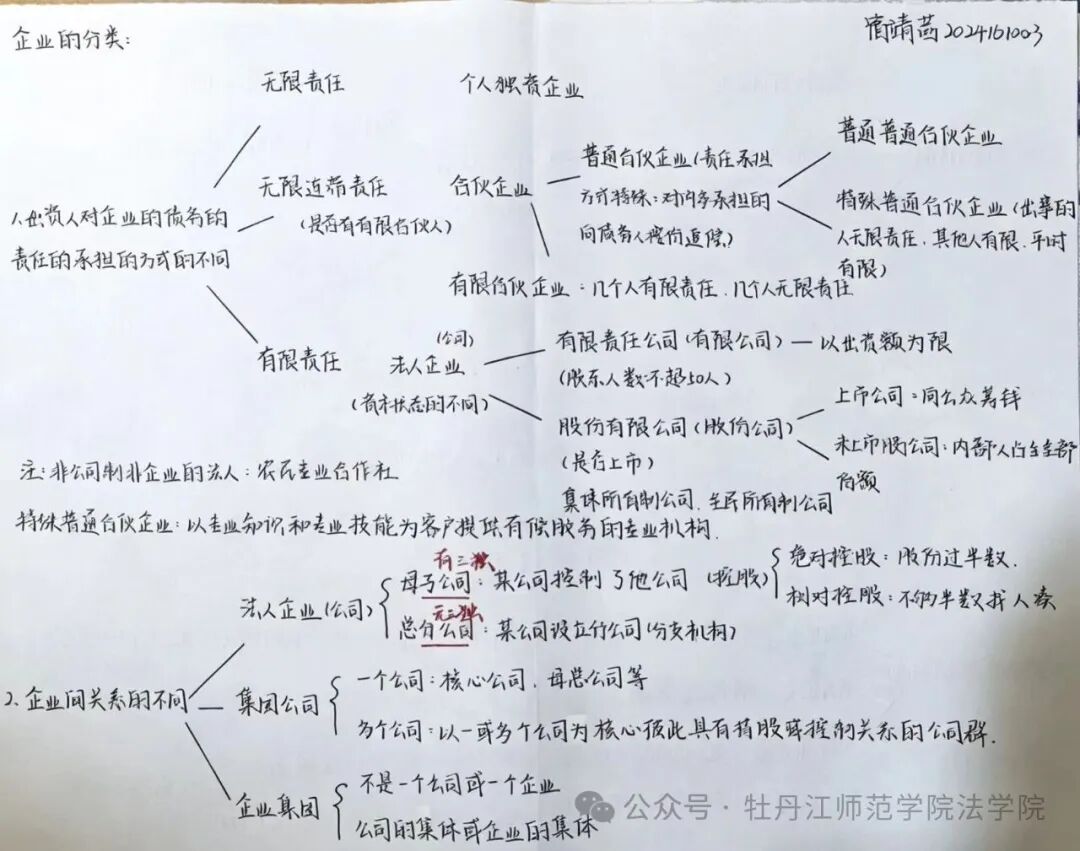 企业的分类：
宿靖茜 2024161003
无限责任
个人独资企业
1.出资人对企业的债务的
责任的承担的方式的不同
无限连带责任
(是否有有限合伙人)
合伙企业
普通合伙企业(责任承担
方式特殊：对内多承担的
向债务人按份追偿)
普通普通合伙企业
特殊普通合伙企业(出事的
人无限责任，其他人有限，平时
有限)
有限合伙企业：几个人有限责任，几个人无限责任
有限责任
(公司)
法人企业
(资本状态的不同)
有限责任公司(有限公司)—以出资额为限
(股东人数不超50人)
股份有限公司(股份公司)
(是否上市)
上市公司：向公众筹钱
未上市股公司：内部人占全部
份额
集体所有制公司、全民所有制公司
注：非公司制非企业的法人：农民专业合作社
特殊普通合伙企业：以专业知识和专业技能为客户提供有偿服务的专业机构.
2、企业间关系的不同
法人企业(公司)
有三独
母子公司：某公司控制了他公司 (控股)
绝对控股：股份过半数.
相对控股：不够半数找人凑
无三独
总分公司：某公司设立分公司(分支机构)
集团公司
一个公司：核心公司、母总公司等
多个公司：以一或多个公司为核心彼此具有持股或控制关系的公司群.
企业集团
不是一个公司或一个企业
公司的集体或企业的集体
公众号·牡丹江师范学院法学院